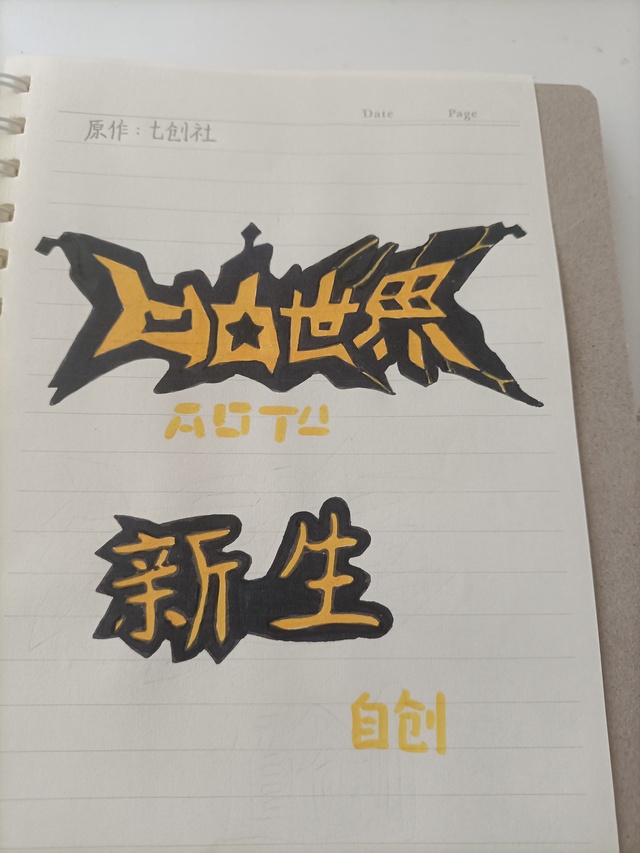 Date Page
原作：七创社
凹凸世界
AOTU
新生
自创